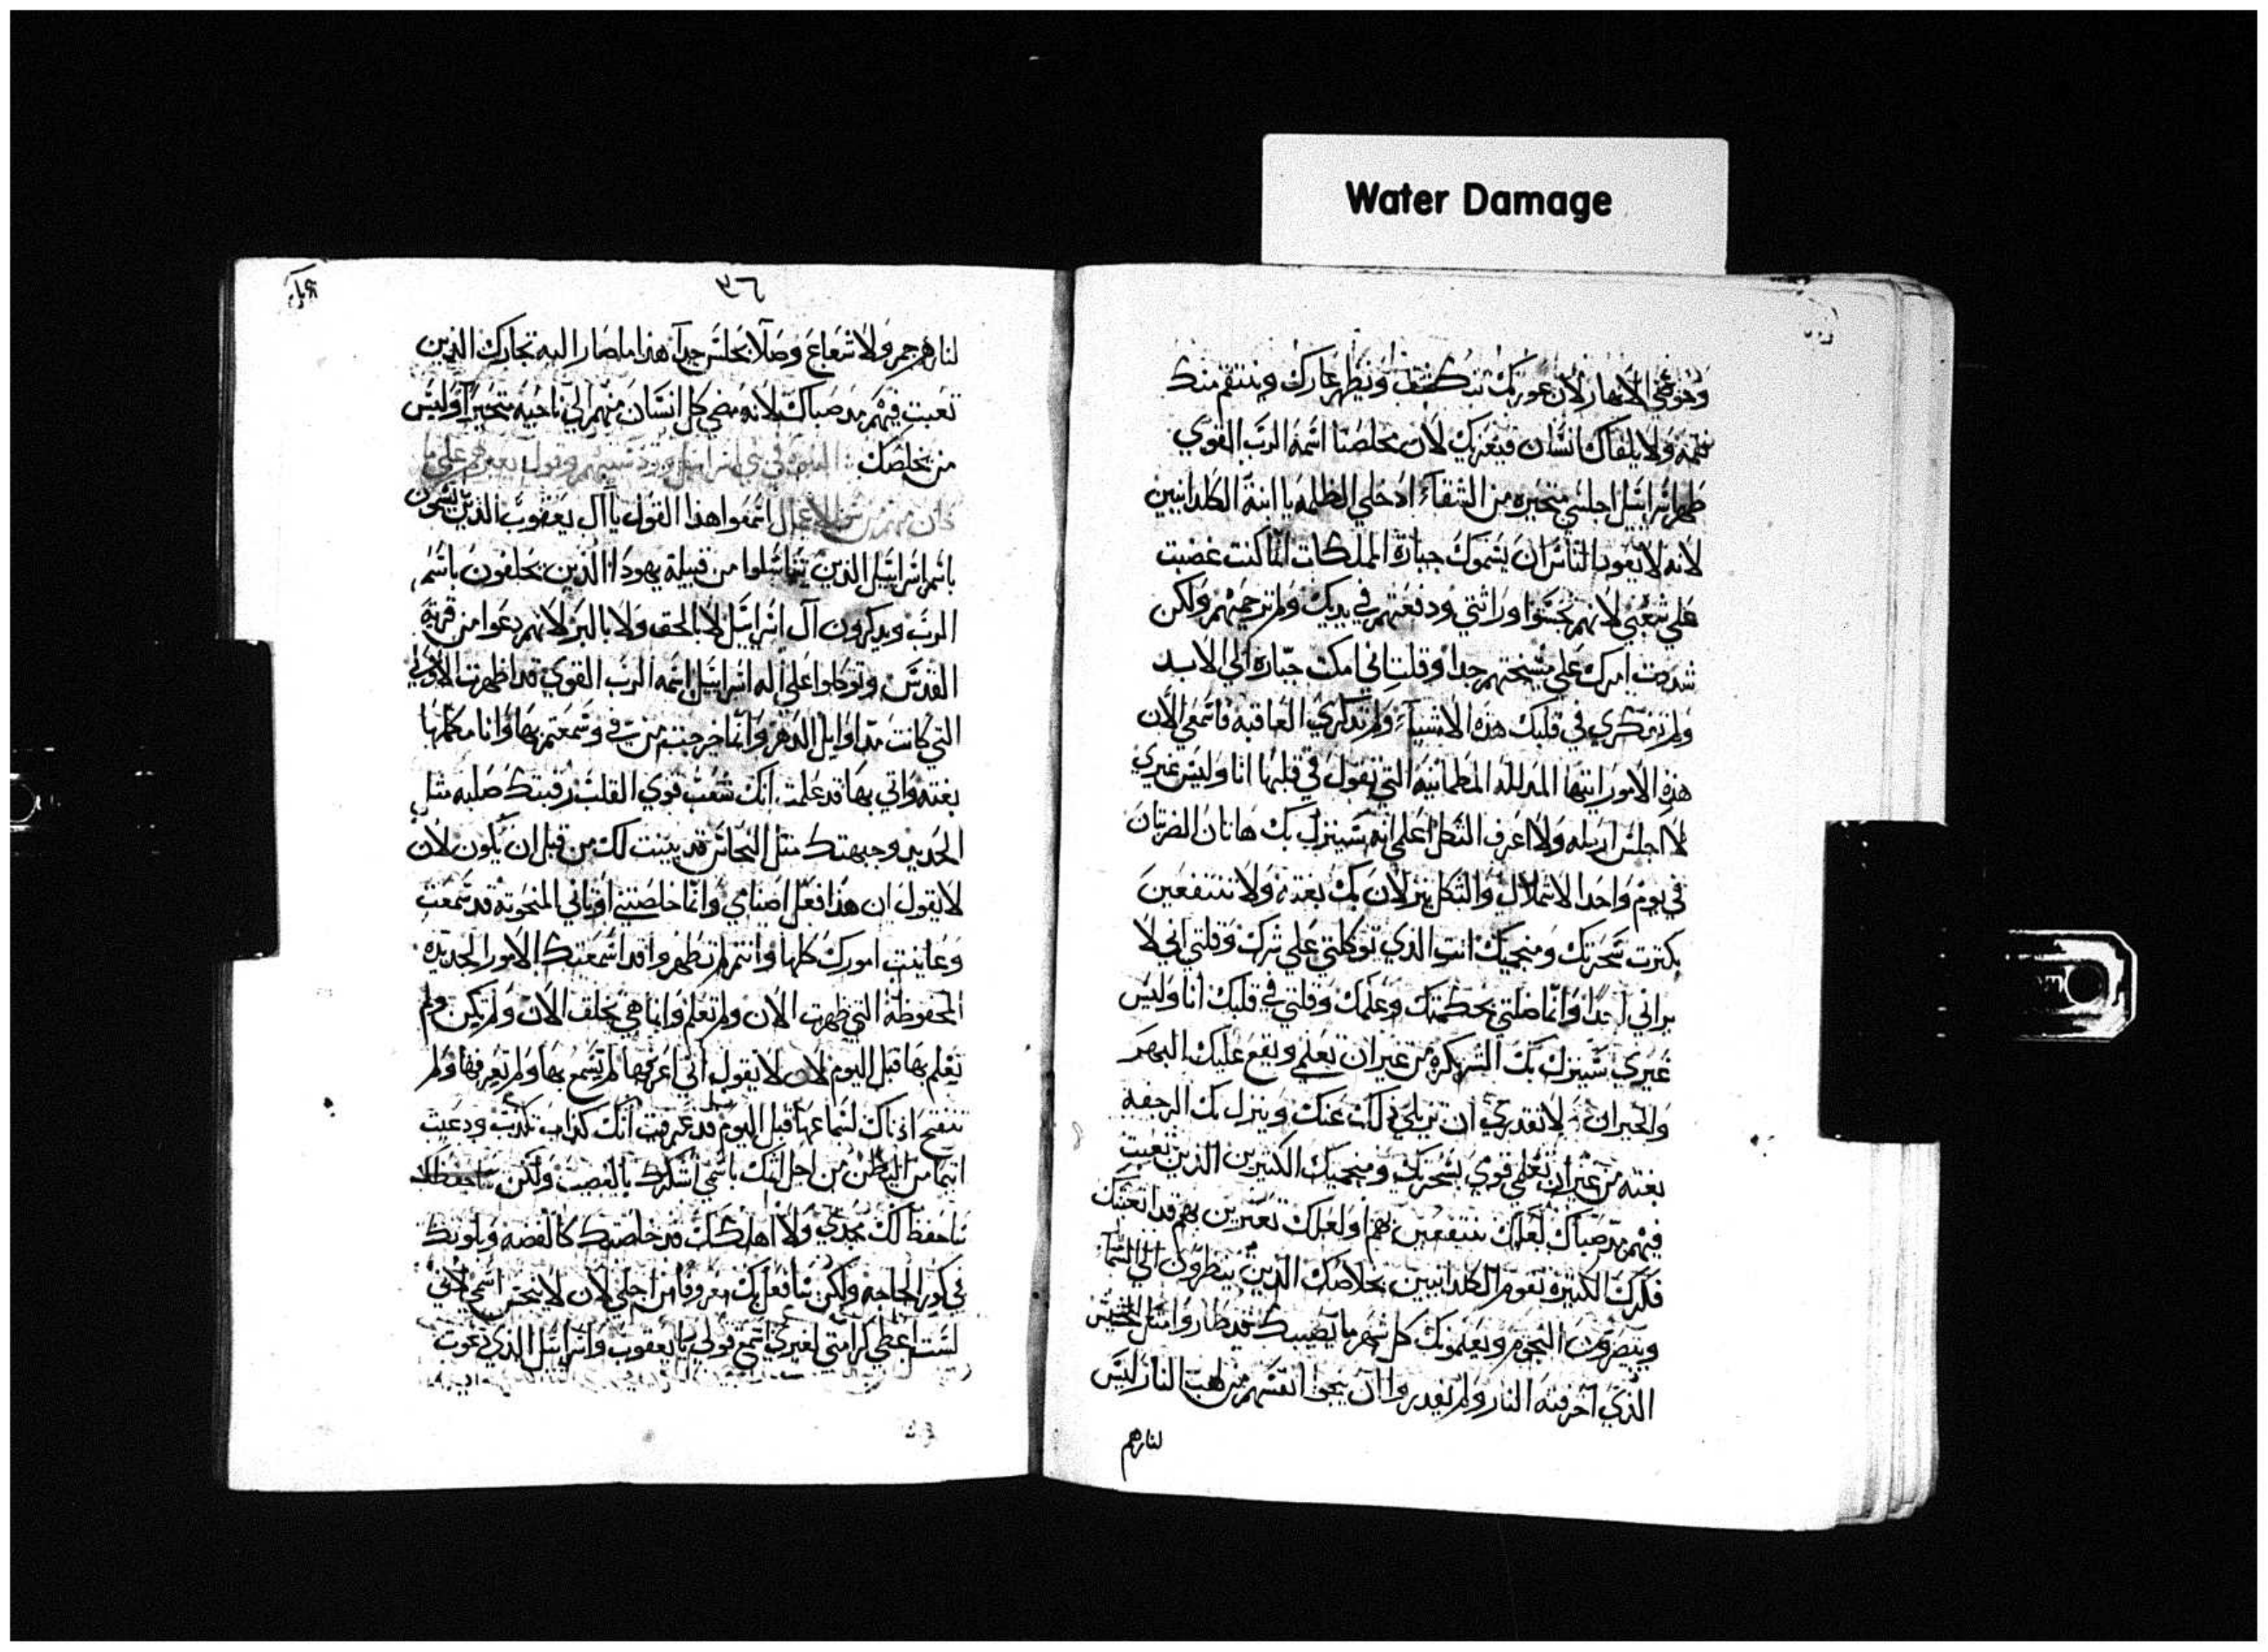 Water Damage
وخوضي الانهار لان عورتك تنكشف ويظهر عارك وينتقم منك
نقمه ولا يلقاك انسان فيعزيك لان مخلصنا اسمه الرب القوي
طهر اسرائيل اجلسي متحيره من الشقاء ادخلي الظلمه يا ابنة الكلدانيين
لانه لا يعود الناس ان يسموك جبارة المملكات انما كنت غضبت
علي شعبي لانهم نجسوا وراثتي ودفعتهم في يديك ولم ترحميهم ولكن
شددت امرك علي مشيختهم جدا وقلت اني امكث جباره الي الابد
ولم تفكري في قلبك هذه الاشياء ولم تذكري العاقبه فاسمعي الان
هذه الامور ايتها المدلله المطمانيه التي تقول في قلبها انا وليس غيري
لا اجلس ارمله ولا اعرف الثكل اعلمي انه سينزل بك هاتان الضربتان
في يوم واحد الارمال والثكل ينزلان بك بغته ولا تنتفعين
بكثرت سحرتك ومنجميك انت الذي توكلتي علي شرك وقلتي اني لا
يراني احدا وانما ضلتي بحكمتك وعلمك وقلتي في قلبك انا وليس
غيري سينزل بك الشر بكره من غير ان تعلمي ويقع عليك البهر
والحيران ولا تقدري ان تزيلي ذلك عنك وينزل بك الرجفه
بغته من غير ان تعلمي قومي بسحرتك ومنجميك الكثيرين الذين تعبت
فيهم مد صباك لعلك تنتفعين بهم او لعلك تعتزين بهم قد اتعبتك
فكرك الكثيرة تقوم الكلدانيين بخلاصك الذين ينظرون الي السما
ويبصرون النجوم ويعلمونك كل شهر ما يصيبك قد صاروا مثل الحشيش
الذي احرقته النار ولم يقدروا ان ينجوا انفسهم من لهب النار ليس
لنارهم
٣٦
لنارهم جمر ولا شعاع وصلا يجلس جدا هذا ما صار اليه تجارك الذين
تعبت فيهم مد صباك لانه مضي كل انسان منهم الي ناحيه متحيرا وليس
من يخلصك النبوه في بني اسرائيل وقول
كان منهم من الاعمال اسمعوا هذا القول يا آل يعقوب الذين يسمون
باسم اسرائيل الذين تناسلوا من قبيلة يهودا الذين يحلفون باسم
الرب ويذكرون آل اسرائيل لا بالحق ولا بالبر لانهم دعوا من قرية
القدس وتوكلوا علي اله اسرائيل اسمه الرب القوي قد اظهرت الاولي
التي كانت مد اوايل الدهر وانما خرجت من في وسمعتم بها وانا مكملها
بغته واتي بها قد علمت انك شعب قوي القلب رقبتك صلبه مثل
الحديد وجبهتك مثل النحاس قد بينت لك من قبل ان يكون لان
لا يقول ان هذا فعل اصنامي وانما خلصتني اوثاني المنحوته قد سمعت
وعاينت امورك كلها وانتم لم تظهروا قد اسمعتك الامور الجديده
المحفوظه التي ظهرت الان ولم تعلم وانما هي بخلف الان ولم تكن ولم
تعلم بها قبل اليوم لان لا يقول اني اعرفها لم تسمع بها ولم تعرفها ولم
تنفتح اذناك لسماعها قبل اليوم قد عرفت انك كذاب تكذب ودعيت
اثيما من البطن من اجل انك باسمي اشكرك بالغضب ولكن
ساحفظ لك مجدي ولا اهلكك قد خلصتك كالفضه وبلوتك
في كور الحاجه ولكن سافعل بك معروفا من اجلي لان لا ينجس اسمي لاني
لست اعطي كرامتي لغيري اسمع قولي يا يعقوب واسرائيل الذي دعوت